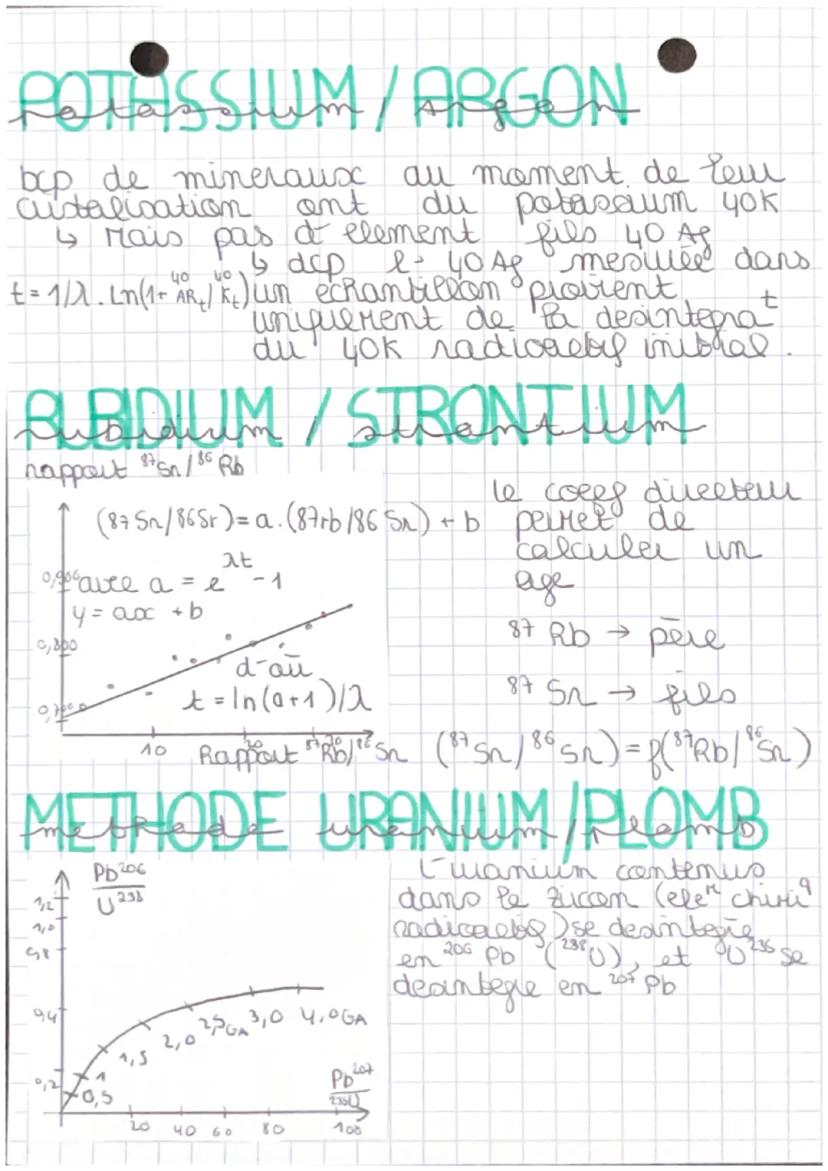 POTASSIUM / ARGON
Potassium / Argon
bcp de mineraux au moment de leur
cristalisation ont du potassium 40K
↳ Mais pas d element fils 40 Ag
↳ dcp l- 40Ag mesurée dans
t = 1/λ . Ln(1+ ⁴⁰ARt / ⁴⁰Kt) un echantillon provient
uniquement de la desintegraᵗ
du 40K radioactif initial.
RUBIDIUM / STRONTIUM
rubidium / strontium
rapport ⁸⁷Sr / ⁸⁶ Rb
(87Sr/86Sr) = a . (87rb/86Sr) + b
avec a = e^λt - 1
y = ax + b
d-où
t = ln(a+1)/λ
0,906
0,800
0,700
10 20 30
Rapport ⁸⁷Rb/⁸⁶Sr
le coeff directeur
permet de
calculer un
age
⁸⁷ Rb → père
⁸⁷ Sr → fils
(⁸⁷Sr/⁸⁶Sr) = f(⁸⁷Rb/⁸⁶Sr)
METHODE URANIUM/PLOMB
methode uranium/plomb
Pb²⁰⁶
U²³⁸
1,2
1,0
0,8
0,4
0,2
0,5
1
1,5
2,0
2,5GA
3,0
4,0GA
Pb²⁰⁷
²³⁵U
20 40 60 80 100
L-uranium contenus
dans le zircon (eleⁿ chimi^q
radioactif) se desintegre
en ²⁰⁶ Pb (²³⁸U), et U²³⁵ se
desintegre en ²⁰⁷ Pb